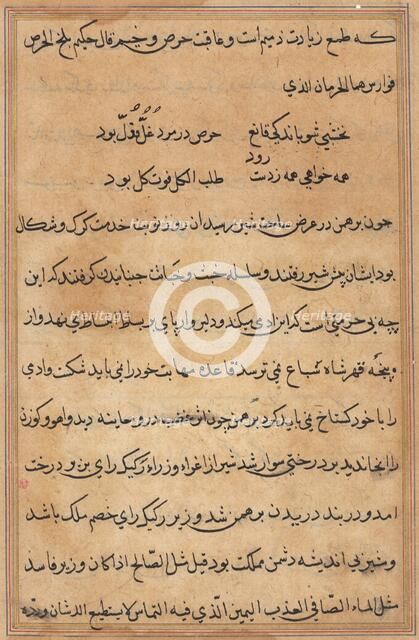 که طمع زیارت ذمیم است و عاقبت حرص وخیم قال حکیم بلخ الحرص
الحرمان الذی
نخشبی شو باندکی قانع حرص در مرد غل و قمل بود
رود
همه خواهی همه ز دست طلب الکل فوت کل بود
چون برهمن در عرض ساحت شیر رسید ان روز نوبت خدمت کرک و شکال
بود ایشان پیش شیر رفتند و سلسله خبث و خباثت جنبانیدن کرفتند که این
چه بی حرمتی است که این ادمی میکند و دلیروار پای بر بساط می نهد و از
پنجه قهر شاه سباع نمی ترسد قاعده مهابت خود را نمی باید شکست و ادمی
را با خود کستاخ نمی باید کرد برهمن چون اثر غضب در روی معاینه دید و اهو و کوزن
را بخاندید بر درختی سوار شد شیر از اغراء وزراء رکیک رای بزیر درخت
امد و در بند دریدن برهمن شد وزیر رکیک رای خصم ملک باشد
و مشیر بی اندیشه دشمن مملکت بود قیل مثل الصالح اذا کان وزیر فاسد
مثل الماء الصافی العذب الذی فیه التماس لا یستطیع